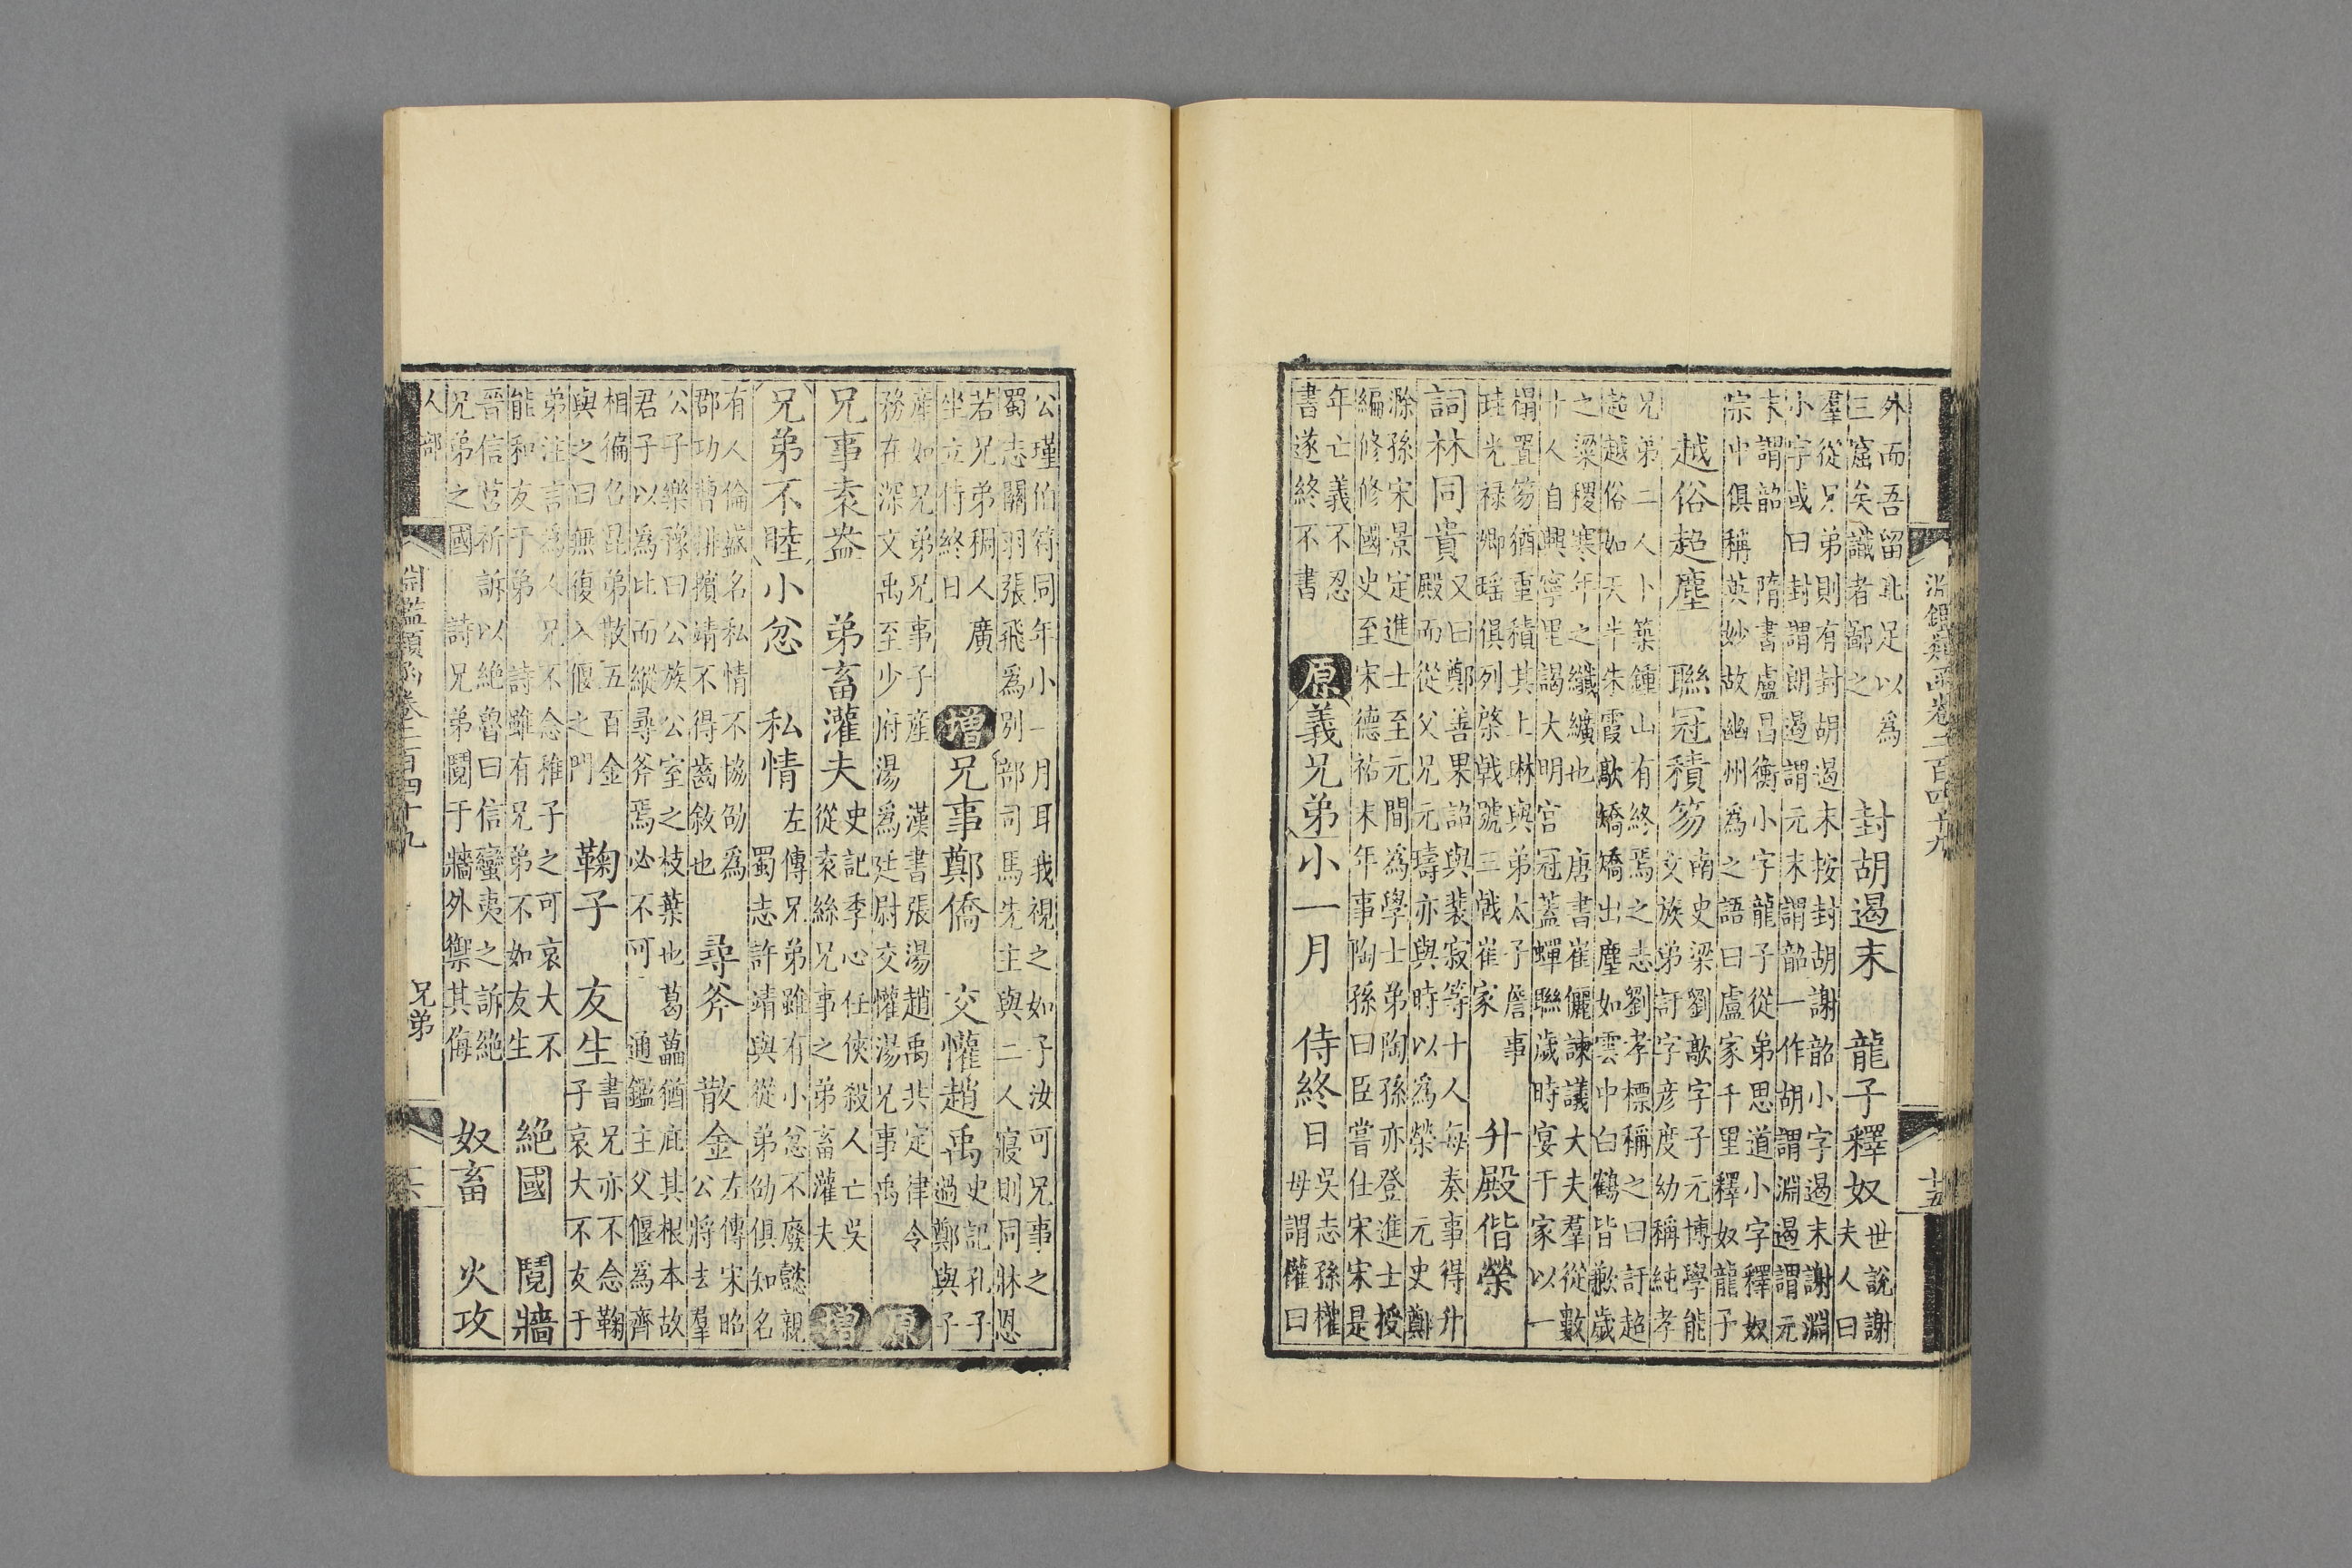 淵鑑類函卷二百四十九 十五
外而吾留此足以為
三窟矣識者鄙之
封胡遏末 龍子釋奴
世說謝
夫人曰
羣從兄弟則有封胡遏末按封胡謝韶小字遏末謝淵
小字或曰封謂朗遏謂元末謂韶一作胡謂淵遏謂元
末謂韶 隋書盧昌衡小字龍子從弟思道小字釋奴
宗中俱稱英妙故幽州為之語曰盧家千里釋奴龍子
越俗超塵 聯冠積笏
南史梁劉歊字子元博學能
文族弟訏字彥度幼稱純孝
兄弟二人卜築鍾山有終焉之志劉孝標稱之曰訏超
超越俗如天半朱霞歊矯矯出塵如雲中白鶴皆歉歲
之粱稷寒年之纖纊也 唐書崔儷諫議大夫羣從數
十人自興寧里謁大明宮冠蓋蟬聯歲時宴于家以一
榻置笏猶重積其上琳與弟太子詹事
珪光祿卿瑤俱列棨戟號三戟崔家
升殿偕榮
詞林同貴
又曰鄭善果詔與裴寂等十人每奏事得升
殿而從父兄元璹亦與時以為榮 元史鄭
滁孫宋景定進士至元間為學士弟陶孫亦登進士授
編修修國史至宋德祐末年事陶孫曰臣嘗仕宋宋是
年亡義不忍
書遂終不書
原 義兄弟小一月 侍終日
吳志孫權
母謂權曰
公瑾伯符同年小一月耳我視之如子汝可兄事之
蜀志關羽張飛為別部司馬先主與二人寢則同牀恩
若兄弟稠人廣
坐立侍終日
增 兄事鄭僑 交懽趙禹
史記孔子
過鄭與子
產如兄弟兄事子產 漢書張湯趙禹共定律令
務在深文禹至少府湯為廷尉交懽湯兄事禹
原
兄事袁盎 弟畜灌夫
史記季心任俠殺人亡吳
從袁絲兄事之弟畜灌夫
增
兄弟不睦小忿 私情
左傳兄弟雖有小忿不廢懿親
蜀志許靖與從弟劭俱知名
有人倫臧名私情不協劭為
郡功曹排擯靖不得齒敘也
尋斧 散金
左傳宋昭
公將去羣
公子樂豫曰公族公室之枝葉也葛藟猶庇其根本故
君子以為比而縱尋斧焉必不可 通鑑主父偃為齊
相徧召昆弟散五百金
與之曰無復入偃之門
鞠子 友生
書兄亦不念鞠
子哀大不友于
弟注言為人兄不念稚子之可哀大不
能和友于弟 詩雖有兄弟不如友生
絕國 鬩牆
晉信莒祈訴以絕魯曰信蠻夷之訴絕
兄弟之國 詩兄弟鬩于牆外禦其侮
奴畜 火攻
人部 淵鑑類函卷二百四十九 兄弟